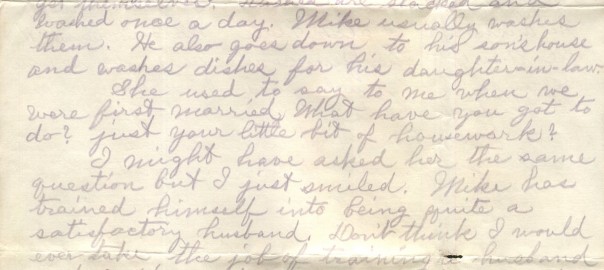 get themselves. Dishes are stacked and
washed once a day. Mike usually washes
them. He also goes down to his son's house
and washes dishes for his daughter-in-law.
She used to say to me when we
were first married, What have you got to
do? just your little bit of housework?
I might have asked her the same
question but I just smiled. Mike has
trained himself into being quite a
satisfactory husband. Don't think I would
ever take the job of training a husband